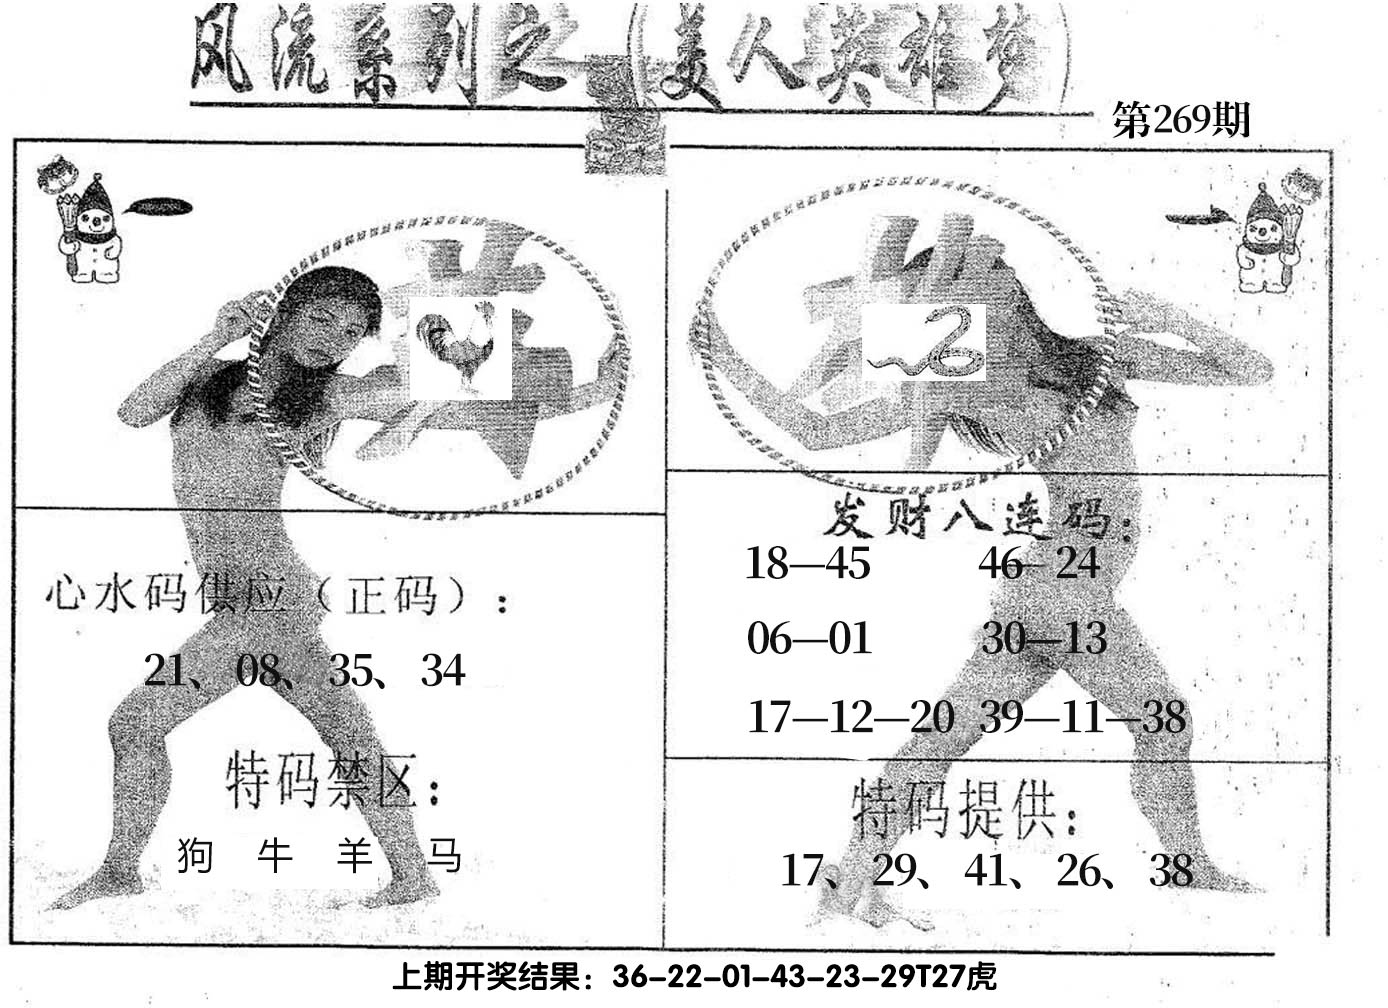 风流系列之 美人英雄梦
第269期
心水码供应（正码）：
21、08、35、34
特码禁区：
狗 牛 羊 马
发财八连码：
18—45 46—24
06—01 30—13
17—12—20 39—11—38
特码提供：
17、29、41、26、38
上期开奖结果：36-22-01-43-23-29T27虎